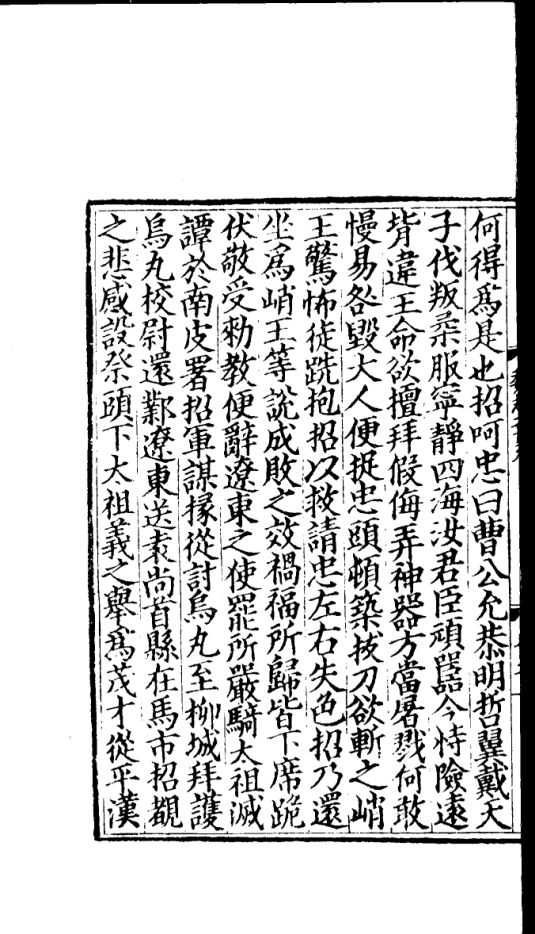 何得爲是也招呵忠曰曹公允恭明哲翼戴天
子伐叛柔服寧靜四海汝君臣頑嚚今恃險遠
背違王命欲擅拜假侮弄神器方當屠戮何敢
慢易咎毀大人便捉忠頭頓築拔刀欲斬之峭
王驚怖徒跣抱招以救請忠左右失色招乃還
坐爲峭王等說成敗之效禍福所歸皆下席跪
伏敬受勑教便辭遼東之使罷所嚴騎太祖滅
譚於南皮署招軍謀掾從討烏丸至柳城拜護
烏丸校尉還鄴遼東送袁尚首縣在馬市招覩
之悲感設祭頭下太祖義之舉爲茂才從平漢